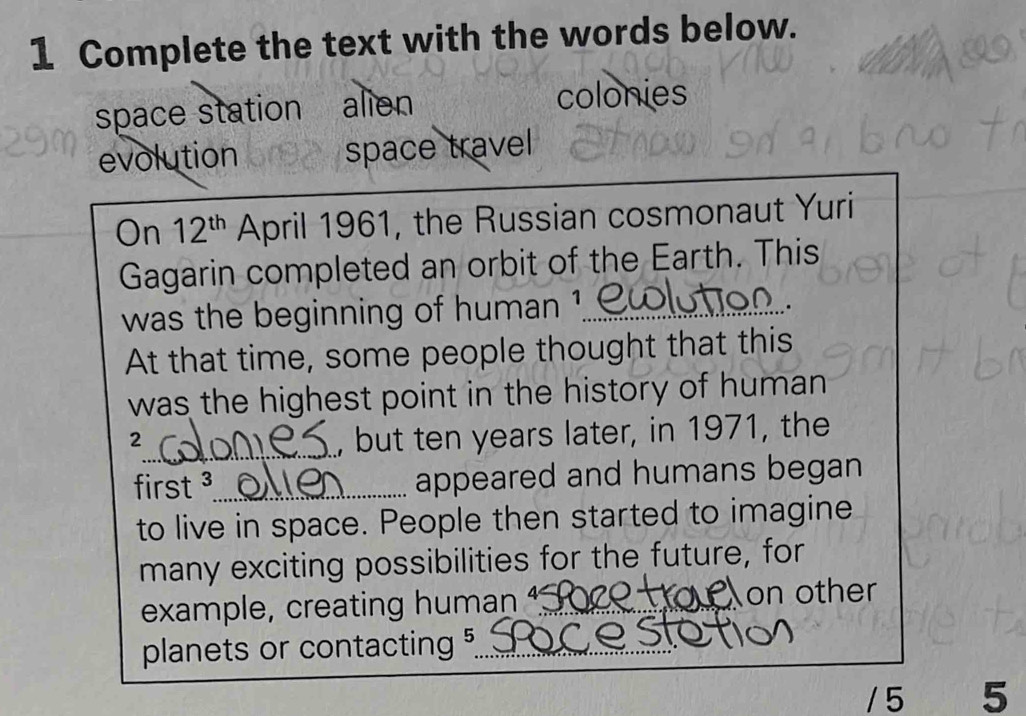 1 Complete the text with the words below.
space station alien colonies
evolution space travel
On 12th April 1961, the Russian cosmonaut Yuri
Gagarin completed an orbit of the Earth. This
was the beginning of human 1 evolution.
At that time, some people thought that this
was the highest point in the history of human
2 colonies, but ten years later, in 1971, the
first 3 alien appeared and humans began
to live in space. People then started to imagine
many exciting possibilities for the future, for
example, creating human 4 space travel on other
planets or contacting 5 space station
/ 5 5